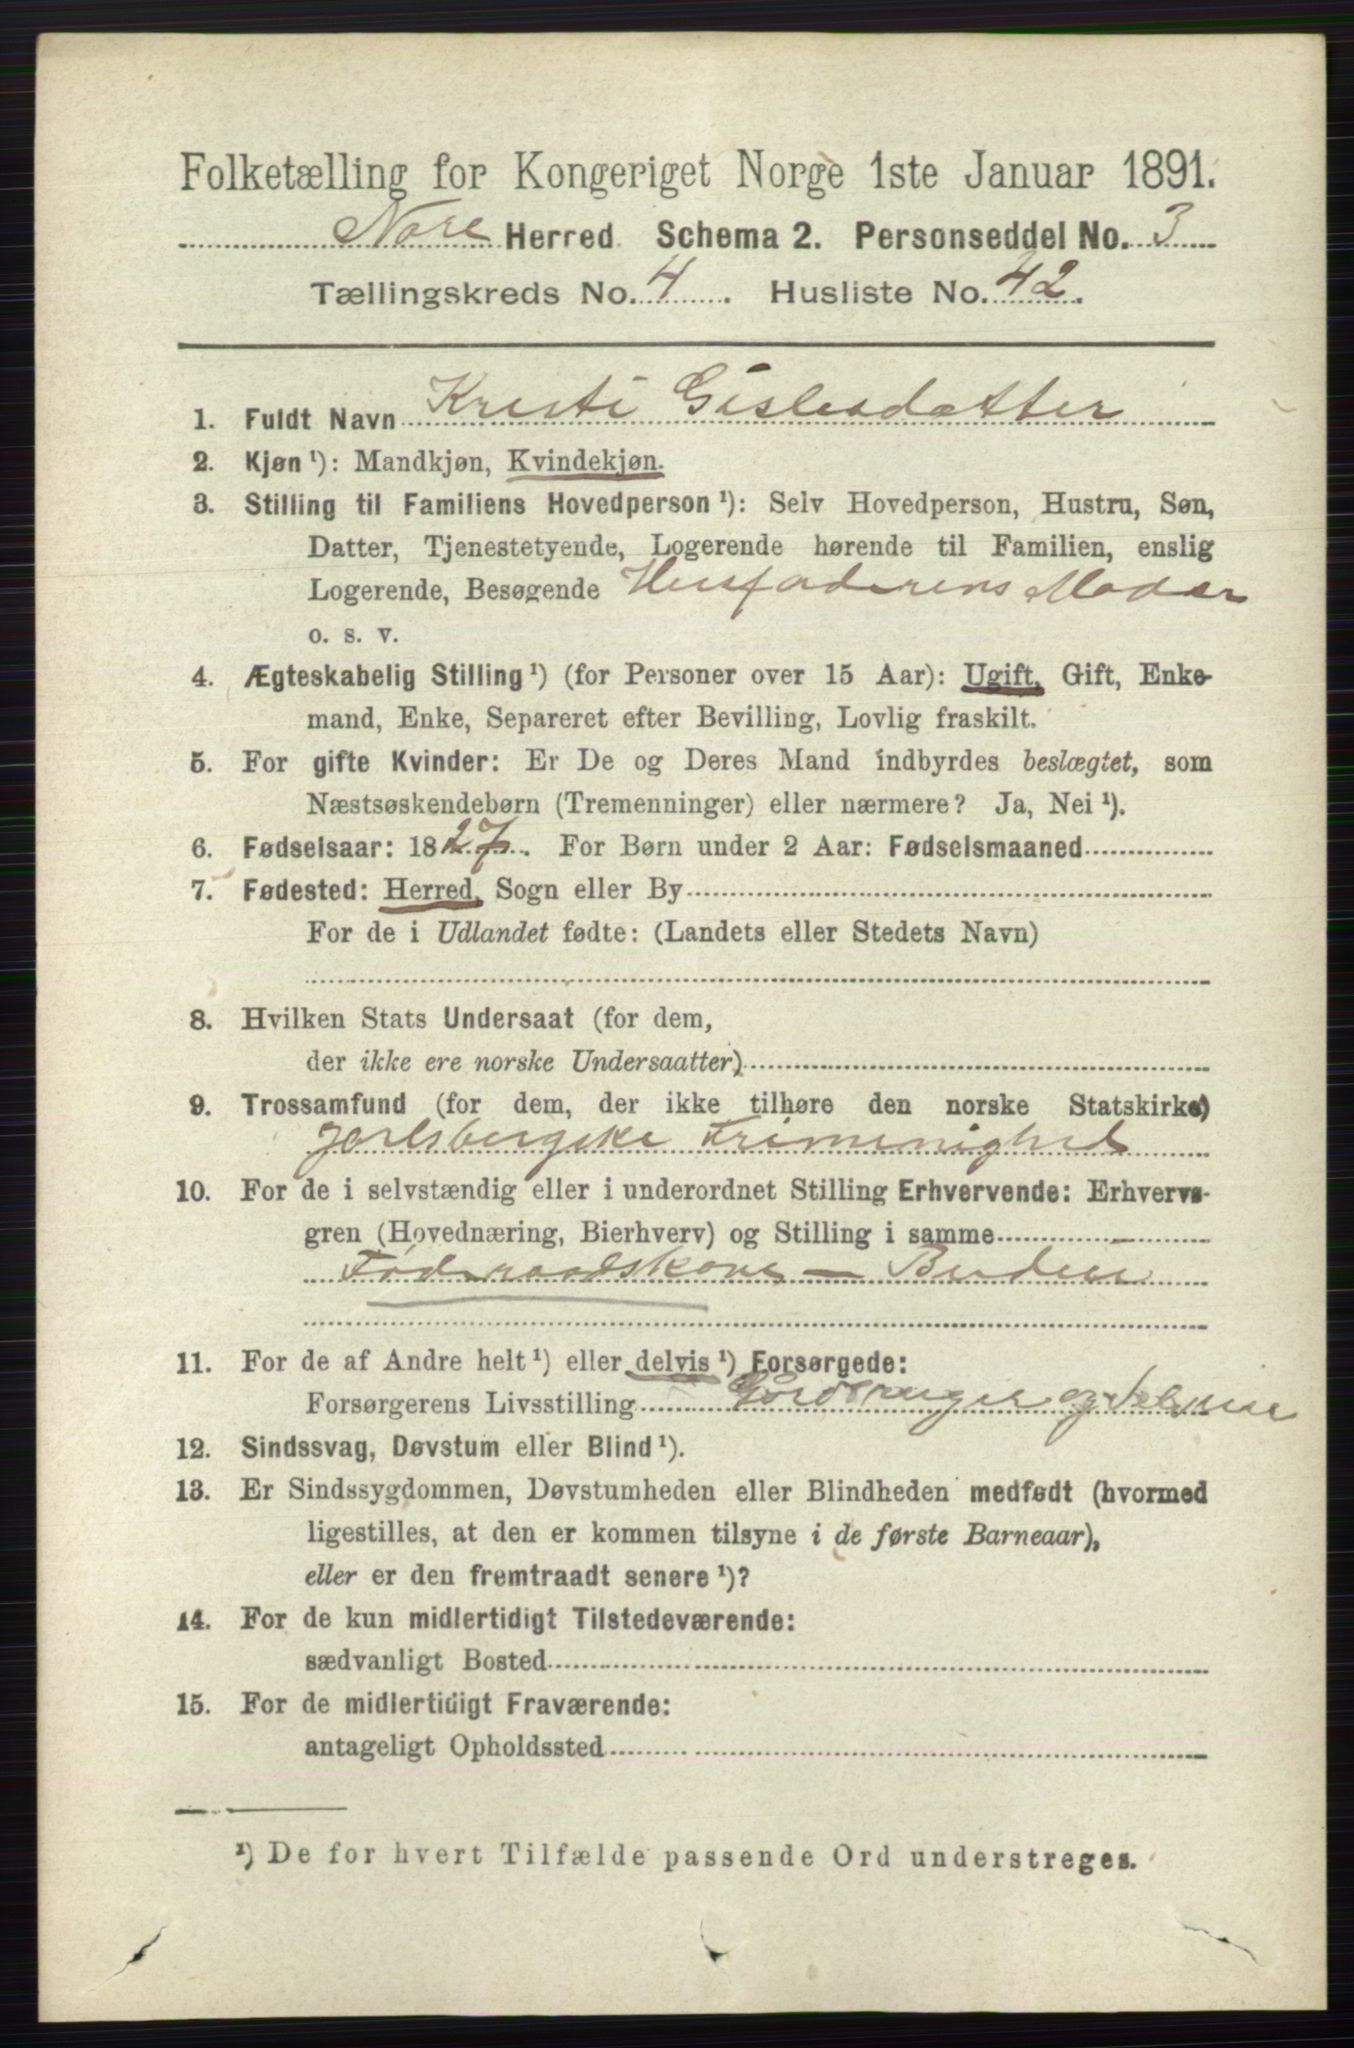 Folketælling for Kongeriget Norge 1ste Januar 1891.
Nore Herred Schema 2. Personseddel No. 3
Tællingskreds No. 4. Husliste No. 42.
1. Fuldt Navn Kristi Gislesdatter
2. Kjøn ¹): Mandkjøn, Kvindekjøn.
3. Stilling til Familiens Hovedperson ¹): Selv Hovedperson, Hustru, Søn,
Datter, Tjenestetyende, Logerende hørende til Familien, enslig
Logerende, Besøgende Husfaderens Moder
o. s. v.
4. Ægteskabelig Stilling ¹) (for Personer over 15 Aar): Ugift, Gift, Enke-
mand, Enke, Separeret efter Bevilling, Lovlig fraskilt.
5. For gifte Kvinder: Er De og Deres Mand indbyrdes beslægtet, som
Næstsøskendebørn (Tremenninger) eller nærmere? Ja, Nei ¹).
6. Fødselsaar: 1827. For Børn under 2 Aar: Fødselsmaaned
7. Fødested: Herred, Sogn eller By
For de i Udlandet fødte: (Landets eller Stedets Navn)
8. Hvilken Stats Undersaat (for dem,
der ikke ere norske Undersaatter)
9. Trossamfund (for dem, der ikke tilhøre den norske Statskirke)
Jarlsbergske Frimenighed
10. For de i selvstændig eller i underordnet Stilling Erhvervende: Erhvervs-
gren (Hovednæring, Bierhverv) og Stilling i samme
Føderaadskone – Budeie
11. For de af Andre helt ¹) eller delvis ¹) Forsørgede:
Forsørgerens Livsstilling Gårdbruger og
12. Sindssvag, Døvstum eller Blind ¹).
13. Er Sindssygdommen, Døvstumheden eller Blindheden medfødt (hvormed
ligestilles, at den er kommen tilsyne i de første Barneaar),
eller er den fremtraadt senere ¹)?
14. For de kun midlertidigt Tilstedeværende:
sædvanligt Bosted
15. For de midlertidigt Fraværende:
antageligt Opholdssted
¹) De for hvert Tilfælde passende Ord understreges.